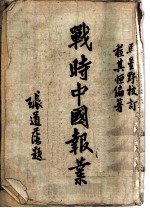 馬星野校訂
程其恒編著
戰時中國報業
張道藩題